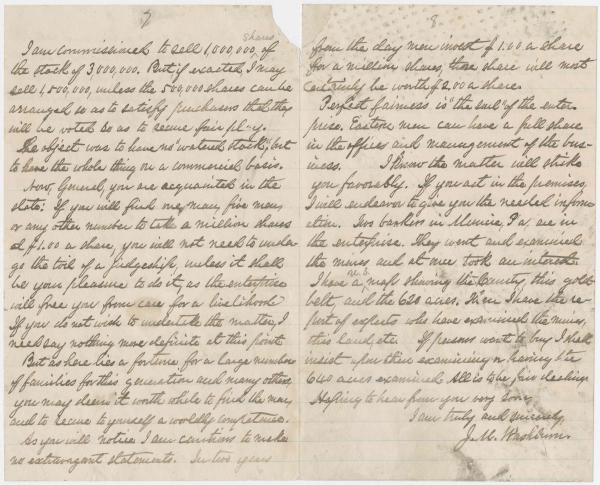 7
shares
I am commissioned to sell 1,000,000, of
the stock of 3,000,000. But if exacted I may
sell 1,500,000, unless the 500,000 shares can be
arranged so as to satisfy purchasers that they
will be voted so as to secure fair play.
The object was to have no watered stock, but
to have the whole thing on a commercial basis.
Now, General, you are acquainted in the
state: If you will find one man, five men,
or any other number to take a million shares
at $1.00 a share, you will not need to under-
go the toil of a judgeship, unless it shall
be your pleasure to do it, as the enterprise
will free you from care for a livelihood
If you do not wish to undertake the matter, I
need say nothing more definite at this point.
But as here lies a fortune for a large number
of families for this generation and many others,
you may deem it worth while to find the men,
and to secure to yourself a worldly competence.
As you will notice I am cautious to make
no extravagant statements. In two years
8
from the day men invest $1.00 a share
for a million shares, those shares will most
certainly be worth $2.00 a share.
Perfect fairness is the soul of the enter-
prise. Eastern men can have a full share
in the offices and management of the bus-
iness. I know the matter will strike
you favorably. If you act in the premises,
I will endeavor to give you the needed inform-
ation. Two bankers in Pa, are in
the enterprise. They went and examined
the mines and at once took an interest
I have a map showing the County, this gold
belt and the 620 acres. Then I have the re-
port of experts who have examined the mines,
this land, etc. If persons want to buy I shall
insist upon their examining or having the
640 acres examined. All is to be fair dealing
Hoping to hear from you very soon,
I am truly and sincerely,
J. M. Washburn.